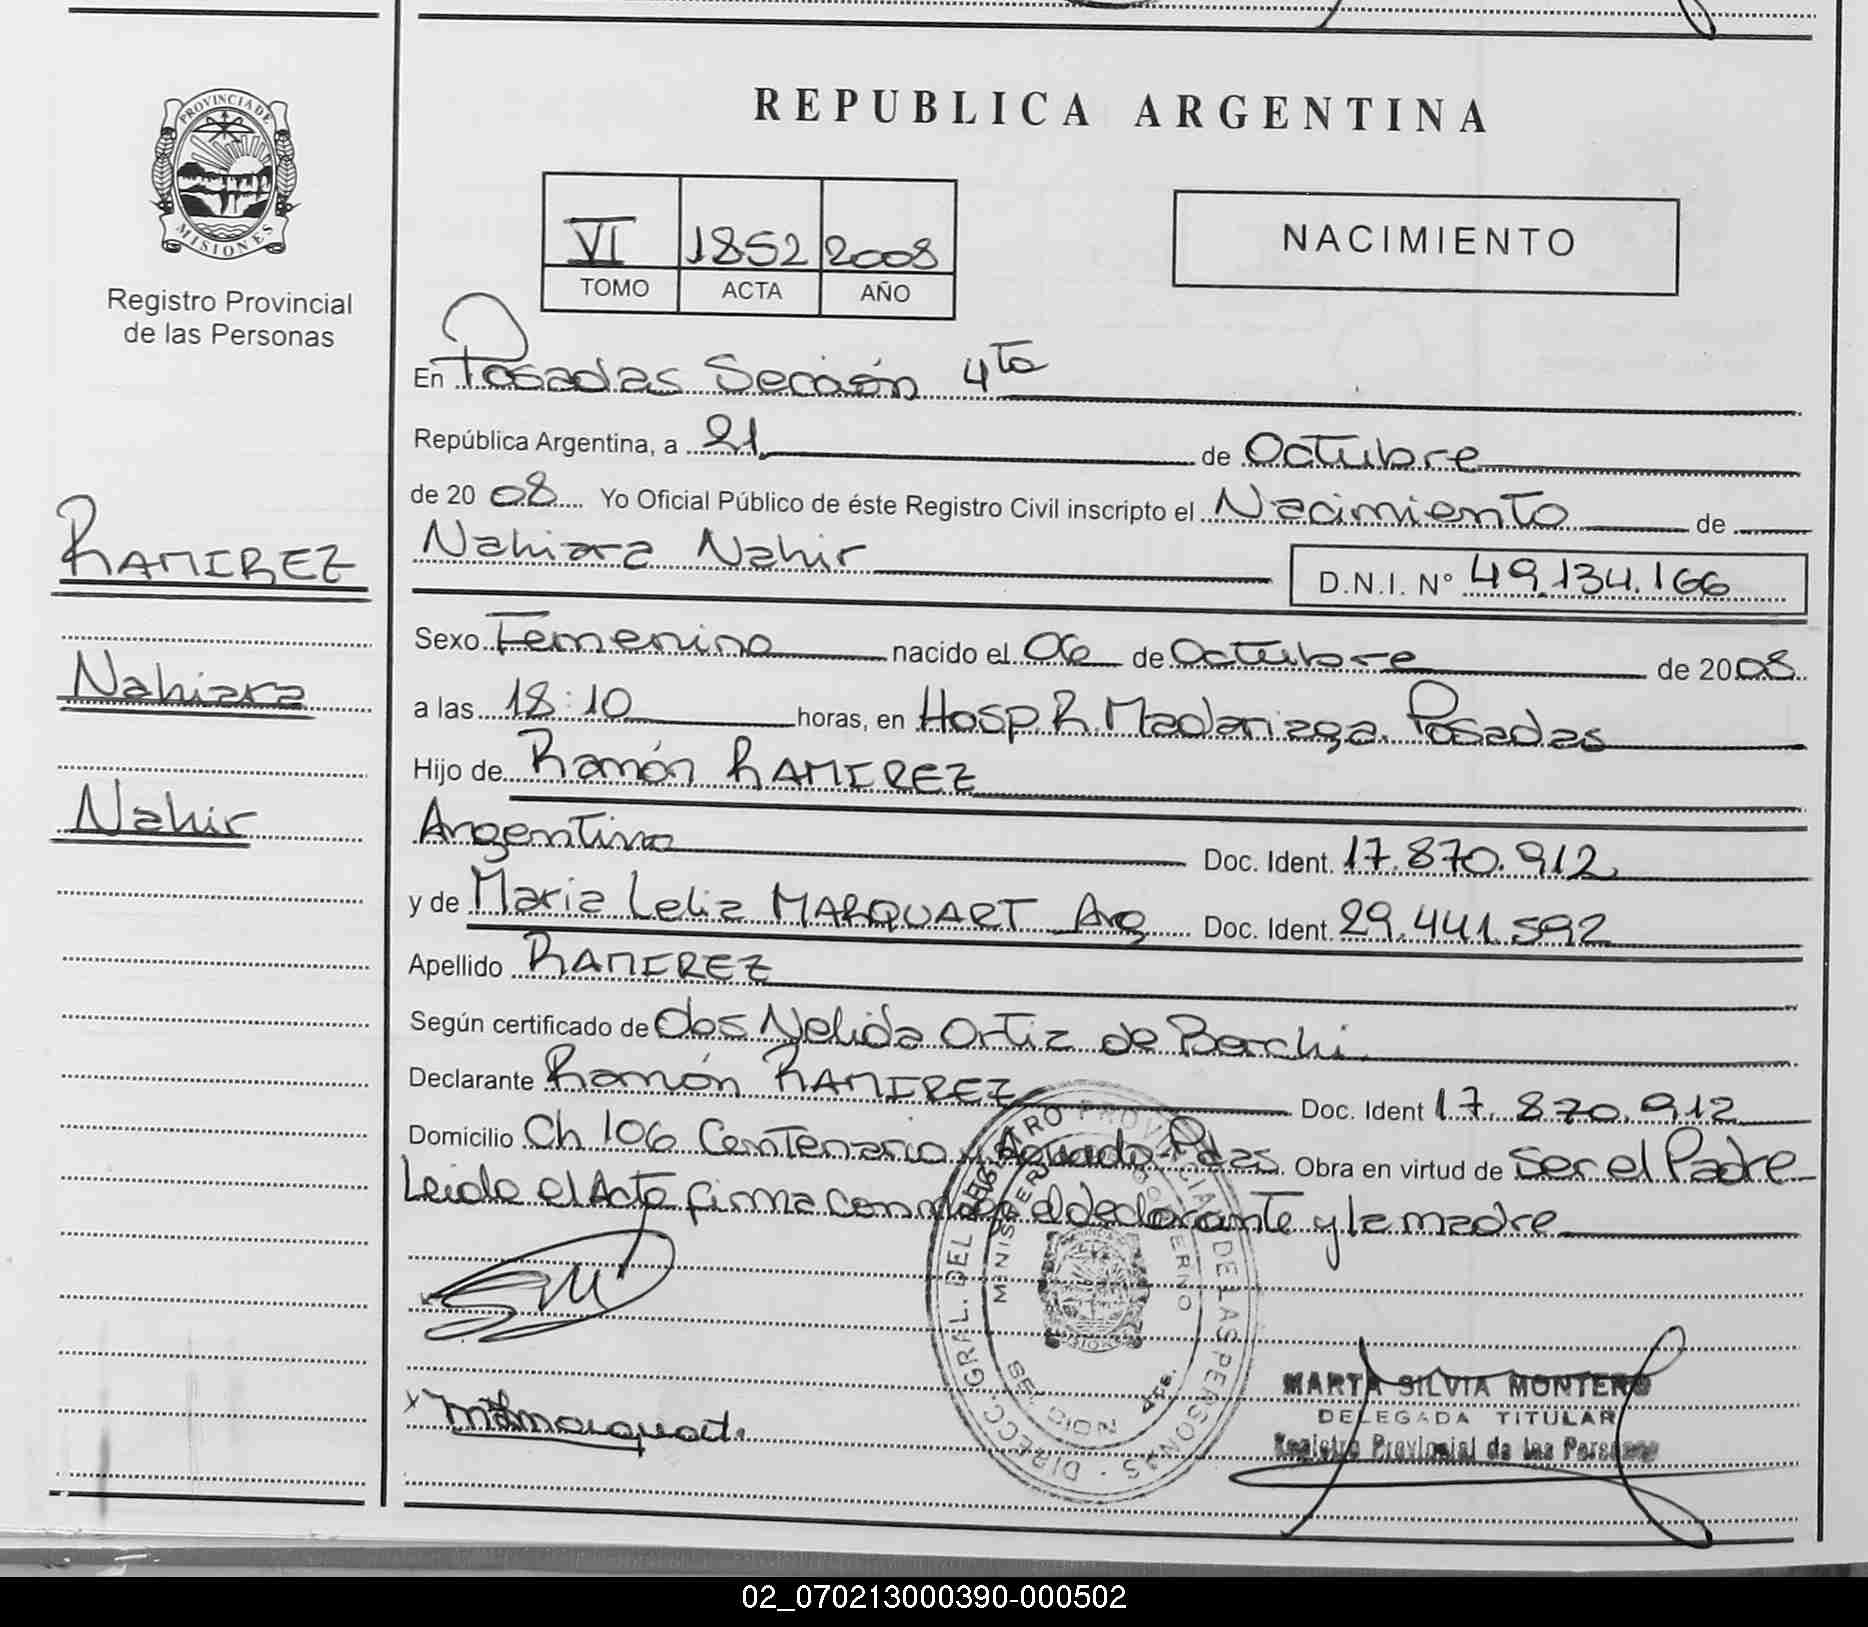 PROVINCIA DE
MISIONES
Registro Provincial
de las Personas
RAMIREZ
Nahiara
Nahir
REPUBLICA ARGENTINA
VI 1852 2008
TOMO ACTA AÑO
NACIMIENTO
En Posadas Sección 4ta
República Argentina, a 21 de Octubre
de 2008 Yo Oficial Público de éste Registro Civil inscripto el Nacimiento de
Nahiara Nahir D.N.I. N° 49.134.166
Sexo Femenino nacido el 06 de Octubre de 2008
a las 18:10 horas, en Hosp. R. Madariaga. Posadas
Hijo de Ramón RAMIREZ
Argentino Doc. Ident. 17.870.912
y de Maria Lelia MARQUART Arg Doc. Ident. 29.441.592
Apellido RAMIREZ
Según certificado de Obs Nelida Ortiz de Berchi
Declarante Ramón RAMIREZ Doc. Ident 17.870.912
Domicilio Ch 106 Centenario y Aguado Pdas. Obra en virtud de ser el Padre
Leida el Acta firma conmigo el declarante y la madre
DIRECC. GRAL. DEL REGISTRO PROVINCIAL DE LAS PERSONAS
MARTA SILVIA MONTERO
DELEGADA TITULAR
Registro Provincial de las Personas
02_070213000390-000502